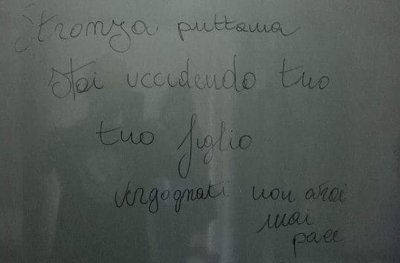 Stronza puttana
stai uccidendo tuo
tuo figlio
vergognati non avrai
mai
pace